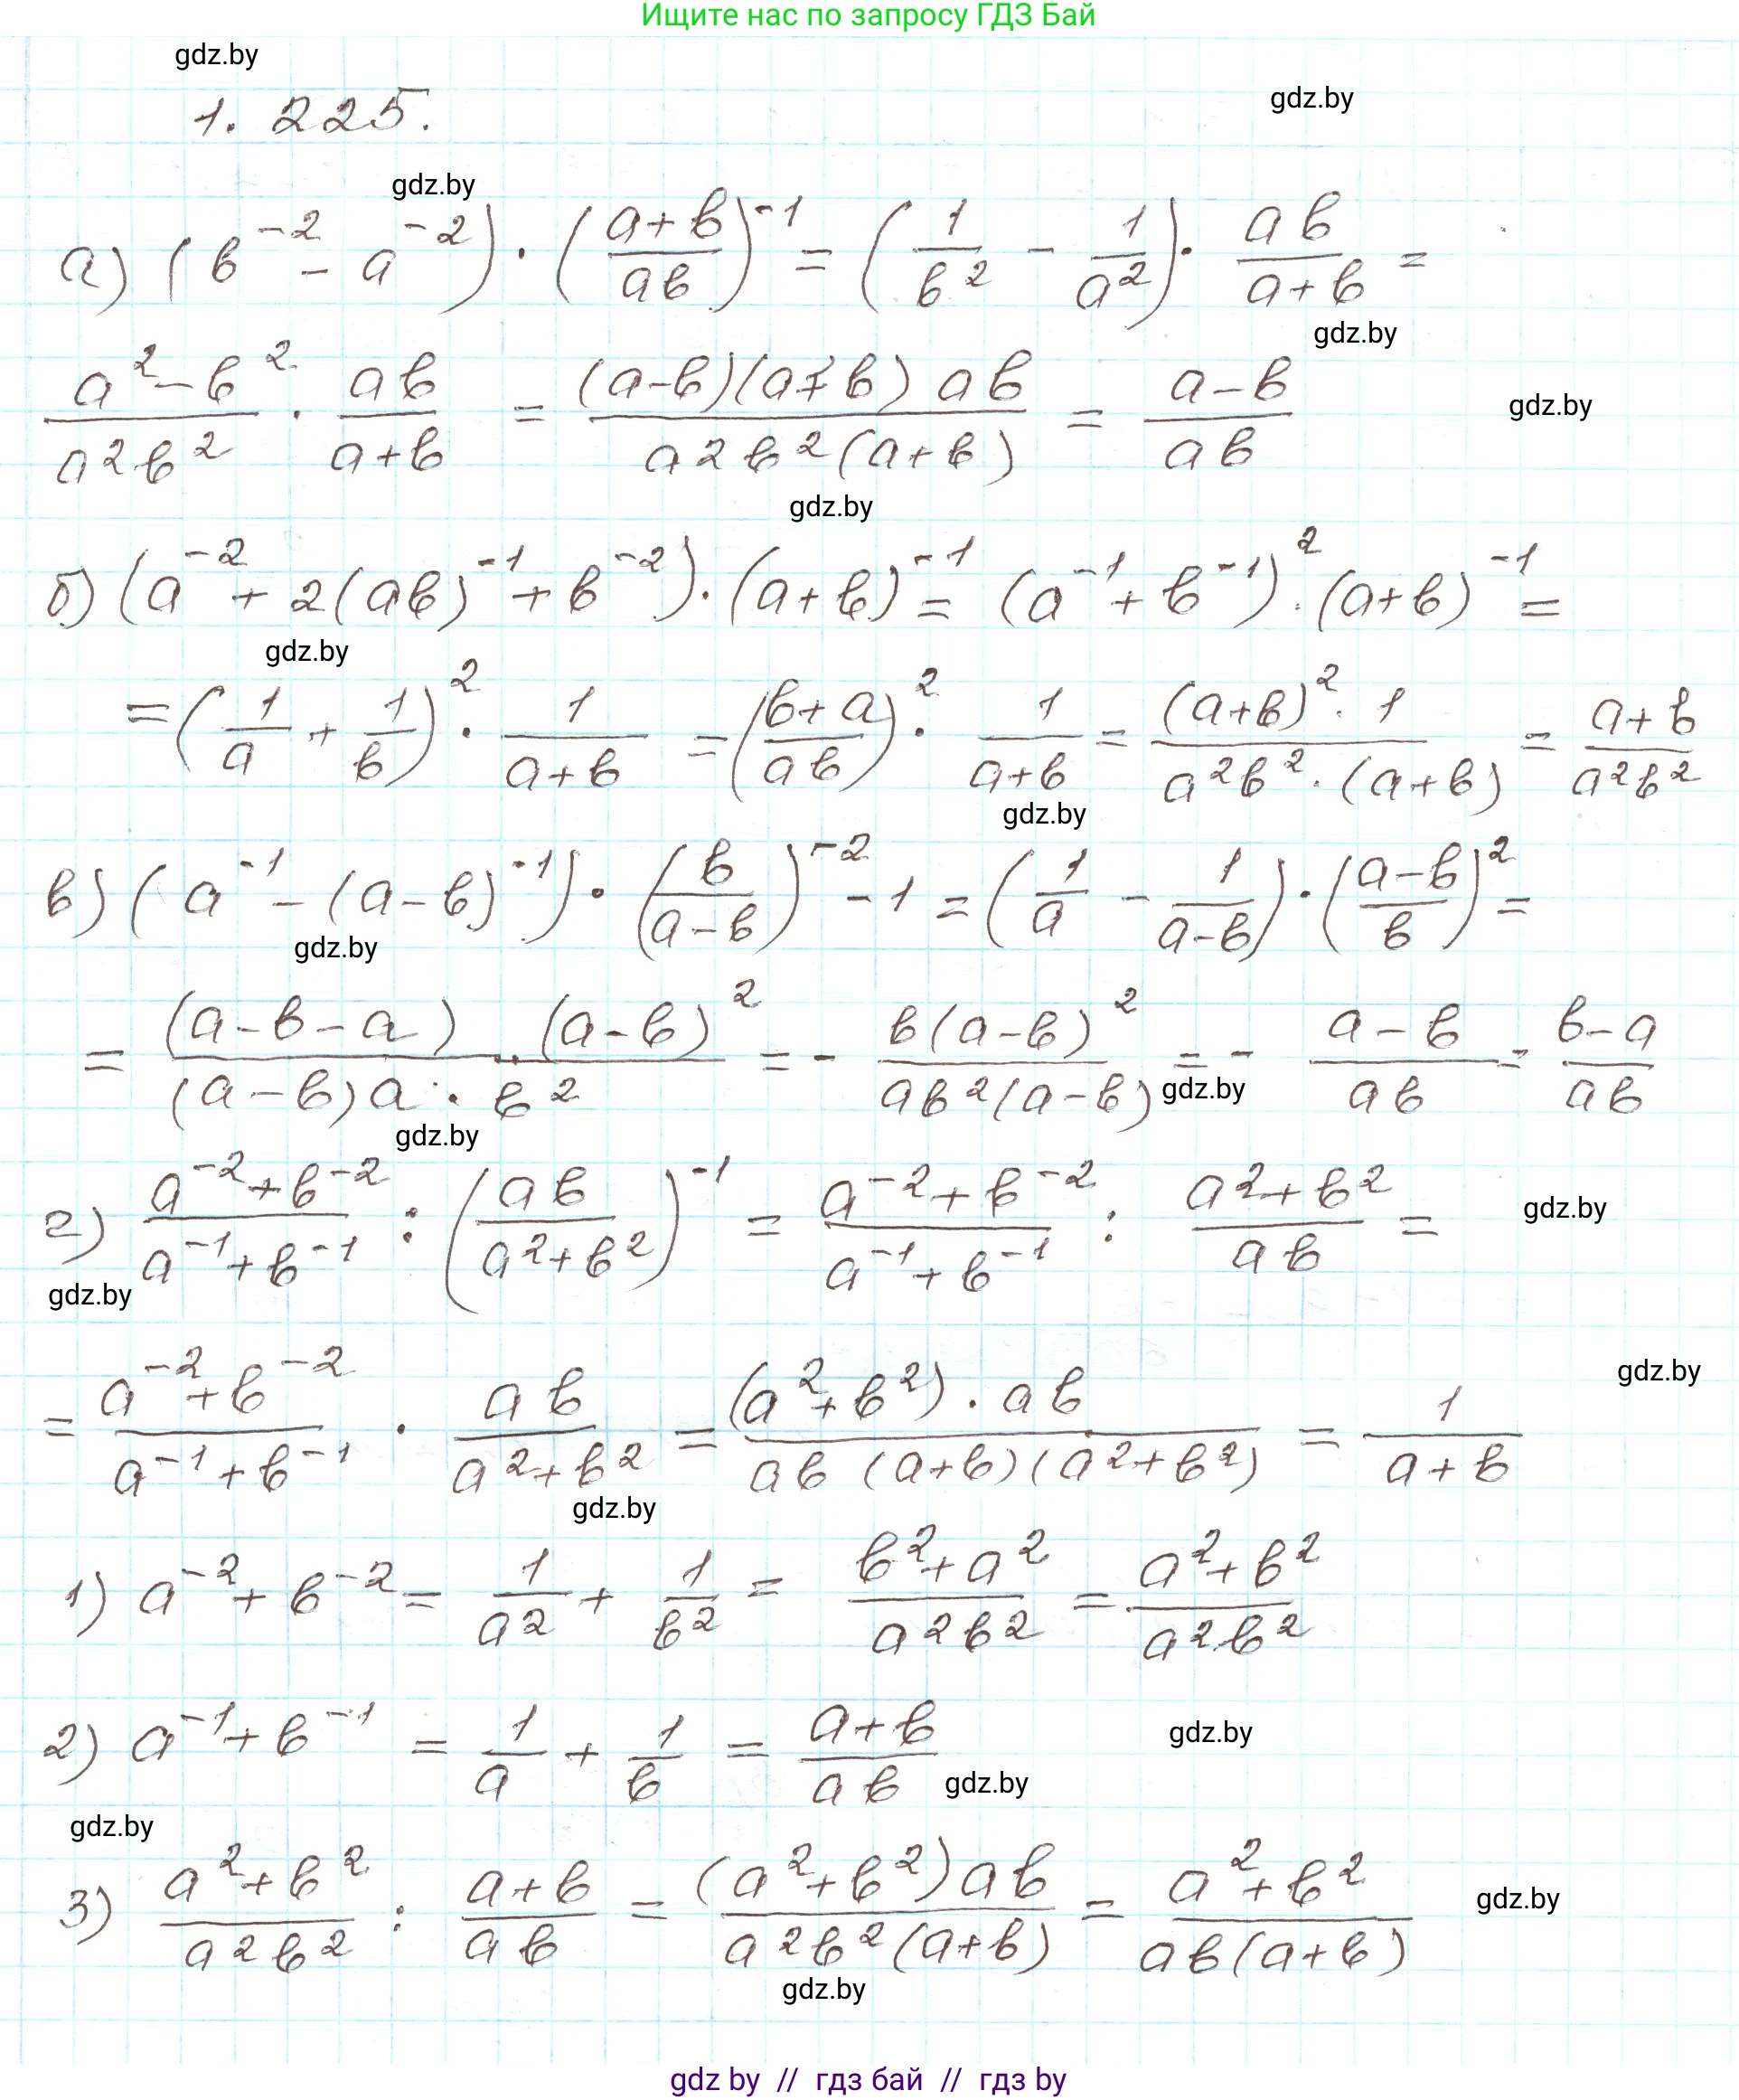 Ищите нас по запросу ГДЗ Бай
gdz.by
1. 225.
gdz.by
gdz.by
а) (b^{-2} - a^{-2}) · ((a+b)/(ab))^{-1} = (1/b^2 - 1/a^2) · (ab)/(a+b) =
gdz.by
(a^2-b^2)/(a^2b^2) · (ab)/(a+b) = ((a-b)(a+b) ab)/(a^2b^2(a+b)) = (a-b)/(ab)
gdz.by
gdz.by
б) (a^{-2} + 2(ab)^{-1} + b^{-2}) · (a+b)^{-1} = (a^{-1} + b^{-1})^2 · (a+b)^{-1} =
gdz.by
= (1/a + 1/b)^2 · 1/(a+b) = ((b+a)/(ab))^2 · 1/(a+b) = ((a+b)^2 · 1)/(a^2b^2 · (a+b)) = (a+b)/(a^2b^2)
gdz.by
в) (a^{-1} - (a-b)^{-1}) · (b/(a-b))^{-2} - 1 = (1/a - 1/(a-b)) · ((a-b)/b)^2 =
gdz.by
= ((a-b-a) · (a-b)^2)/((a-b)a · b^2) = - (b(a-b)^2)/(ab^2(a-b)) = - (a-b)/(ab) = (b-a)/(ab)
gdz.by
gdz.by
г) (a^{-2}+b^{-2})/(a^{-1}+b^{-1}) : ((ab)/(a^2+b^2))^{-1} = (a^{-2}+b^{-2})/(a^{-1}+b^{-1}) : (a^2+b^2)/(ab) =
gdz.by
gdz.by
= (a^{-2}+b^{-2})/(a^{-1}+b^{-1}) · (ab)/(a^2+b^2) = ((a^2+b^2) · ab)/(ab (a+b)(a^2+b^2)) = 1/(a+b)
gdz.by
gdz.by
1) a^{-2} + b^{-2} = 1/a^2 + 1/b^2 = (b^2+a^2)/(a^2b^2) = (a^2+b^2)/(a^2b^2)
2) a^{-1} + b^{-1} = 1/a + 1/b = (a+b)/(ab)
gdz.by
gdz.by
gdz.by
3) (a^2+b^2)/(a^2b^2) : (a+b)/(ab) = ((a^2+b^2)ab)/(a^2b^2(a+b)) = (a^2+b^2)/(ab(a+b))
gdz.by
gdz.by
gdz by // гдз бай // гдз by